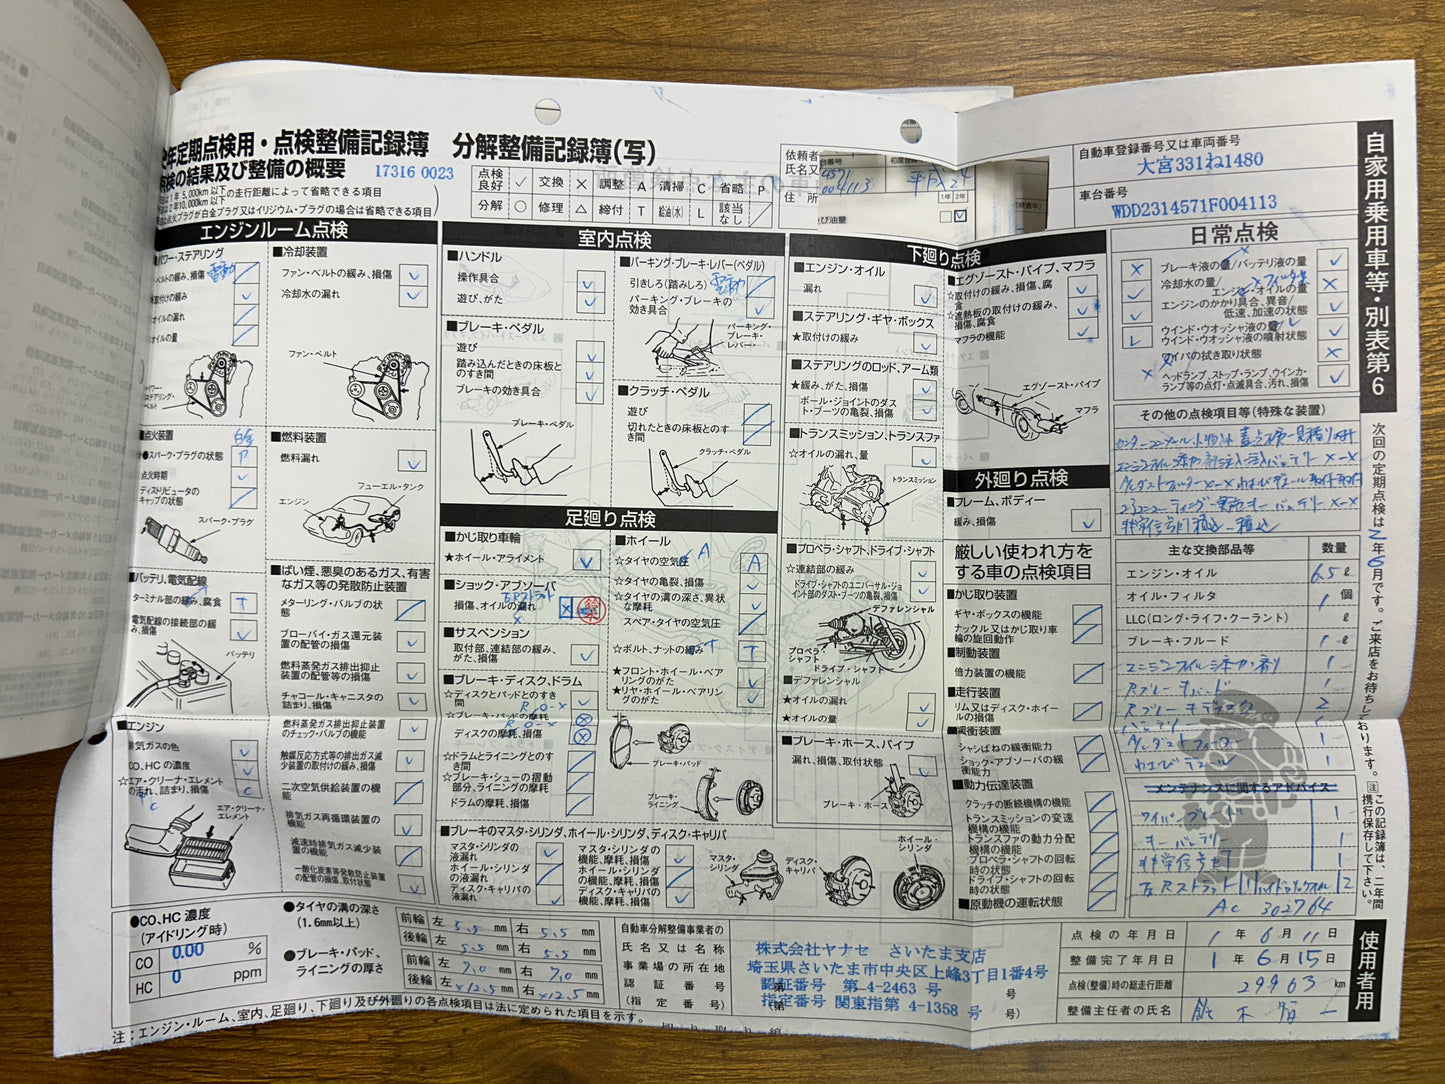 年定期点検用・点検整備記録簿　分解整備記録簿(写)
点検の結果及び整備の概要
17316 0023
は1年 5,000km以下の走行距離によって省略できる項目
は2年10,000km以下
点火プラグが白金プラグ又はイリジウム・プラグの場合は省略できる項目
点検良好 ✓ 交換 × 調整 A 清掃 C 省略 P
分解 ○ 修理 △ 締付 T 給油(水) L 該当なし ╱
依頼者
氏名又
住 所
4571
004113
平成24
1年 2年
び油量
自動車登録番号又は車両番号
大宮331ね1480
車台番号
WDD2314571F004113
自家用乗用車等・別表第6
エンジンルーム点検
パワー・ステアリング
ベルトの緩み、損傷 電動
取付けの緩み
オイルの漏れ
オイルの量
ステアリング・ベルト
■冷却装置
ファン・ベルトの緩み、損傷
冷却水の漏れ
ファン・ベルト
■点火装置
白金
スパーク・プラグの状態 P
点火時期
ディストリビュータのキャップの状態
スパーク・プラグ
■燃料装置
燃料漏れ
フューエル・タンク
エンジン
■バッテリ、電気配線
ターミナル部の緩み、腐食 T
電気配線の接続部の緩み、損傷
バッテリ
■ばい煙、悪臭のあるガス、有害なガス等の発散防止装置
メターリング・バルブの状態
ブローバイ・ガス還元装置の配管の損傷
燃料蒸発ガス排出抑止装置の配管等の損傷
チャコール・キャニスタの詰まり、損傷
燃料蒸発ガス排出抑止装置のチェック・バルブの機能
触媒反応方式等の排出ガス減少装置の取付けの緩み、損傷
二次空気供給装置の機能
排気ガス再循環装置の機能
減速時排気ガス減少装置の機能
一酸化炭素等発散防止装置の配管の損傷、取付状態
■エンジン
排気ガスの色
CO、HCの濃度
☆エア・クリーナ・エレメントの汚れ、詰まり、損傷 C
エア・クリーナ・エレメント
室内点検
■ハンドル
操作具合
遊び、がた
■ブレーキ・ペダル
遊び
踏み込んだときの床板とのすき間
ブレーキの効き具合
ブレーキ・ペダル
■パーキング・ブレーキ・レバー(ペダル)
引きしろ(踏みしろ) 電動
パーキング・ブレーキの効き具合
パーキング・ブレーキ・レバー・
■クラッチ・ペダル
遊び
切れたときの床板とのすき間
クラッチ・ペダル
足廻り点検
■かじ取り車輪
★ホイール・アライメント
■ショック・アブソーバ
損傷、オイルの漏れ ×
■サスペンション
取付部、連結部の緩み、がた、損傷
■ブレーキ・ディスク、ドラム
☆ディスクとパッドとのすき間
☆ブレーキ・パッドの摩耗
ディスクの摩耗、損傷
☆ドラムとライニングとのすき間
☆ブレーキ・シューの摺動部分、ライニングの摩耗
ドラムの摩耗、損傷
■ホイール
☆タイヤの空気圧 A
☆タイヤの亀裂、損傷
☆タイヤの溝の深さ、異状な摩耗
スペア・タイヤの空気圧
☆ボルト、ナットの緩み T
★フロント・ホイール・ベアリングのがた
★リヤ・ホイール・ベアリングのがた
ブレーキ・パッド
ブレーキ・ライニング
■ブレーキのマスタ・シリンダ、ホイール・シリンダ、ディスク・キャリパ
マスタ・シリンダの液漏れ
ホイール・シリンダの液漏れ
ディスク・キャリパの液漏れ
マスタ・シリンダの機能、摩耗、損傷
ホイール・シリンダの機能、摩耗、損傷
ディスク・キャリパの機能、摩耗、損傷
マスタ・シリンダ
ディスク・キャリパ
ホイール・シリンダ
下廻り点検
■エンジン・オイル
漏れ
■ステアリング・ギヤ・ボックス
★取付けの緩み
■ステアリングのロッド、アーム類
★緩み、がた、損傷
ボール・ジョイントのダスト・ブーツの亀裂、損傷
■トランスミッション、トランスファ
☆オイルの漏れ、量
トランスミッション
■プロペラ・シャフト、ドライブ・シャフト
☆連結部の緩み
ドライブ・シャフトのユニバーサル・ジョイント部のダスト・ブーツの亀裂、損傷
デファレンシャル
プロペラ・シャフト
ドライブ・シャフト
■デファレンシャル
★オイルの漏れ
★オイルの量
■ブレーキ・ホース、パイプ
漏れ、損傷、取付状態
ブレーキ・ホース
■エグゾースト・パイプ、マフラ
☆取付けの緩み、損傷、腐食
☆遮熱板の取付けの緩み、損傷、腐食
マフラの機能
エグゾースト・パイプ
マフラ
外廻り点検
■フレーム、ボディー
緩み、損傷
厳しい使われ方をする車の点検項目
■かじ取り装置
ギヤ・ボックスの機能
ナックル又はかじ取り車輪の旋回動作
■制動装置
倍力装置の機能
■走行装置
リム又はディスク・ホイールの損傷
■緩衝装置
シャシばねの緩衝能力
ショック・アブソーバの緩衝能力
■動力伝達装置
クラッチの断続機構の機能
トランスミッションの変速機構の機能
トランスファの動力分配機構の機能
プロペラ・シャフトの回転時の状態
ドライブ・シャフトの回転時の状態
■原動機の運転状態
日常点検
ブレーキ液の量/バッテリ液の量
冷却水の量/エンジン・オイルの量
エンジンのかかり具合、異音/低速、加速の状態
ウインド・ウオッシャ液の量/ウインド・ウオッシャ液の噴射状態
ワイパの拭き取り状態
ヘッドランプ、ストップ・ランプ、ウインカ・ランプ等の点灯・点滅具合、汚れ、損傷
その他の点検項目等(特殊な装置)
主な交換部品等 数量
エンジン・オイル 6.5 ℓ
オイル・フィルタ 1 個
LLC(ロング・ライフ・クーラント) ℓ
ブレーキ・フルード 1 ℓ
Rブレーキパッド 1
バッテリー 1
ダストフィルター 1
メンテナンスに関するアドバイス
ワイパーブレード 1
AC 302764
次回の定期点検は2年6月です。ご来店をお待ちしております。
注 この記録簿は、二年間携行保存して下さい。
使用者用
●CO、HC 濃度
(アイドリング時)
CO 0.00 %
HC 0 ppm
●タイヤの溝の深さ
(1.6mm以上)
●ブレーキ・パッド、ライニングの厚さ
前輪 左 5.5 mm 右 5.5 mm
後輪 左 5.5 mm 右 5.5 mm
前輪 左 9.0 mm 右 9.0 mm
後輪 左 ×12.5 mm 右 ×12.5 mm
自動車分解整備事業者の
氏名又は名称
事業場の所在地
認証番号
(指定番号)
株式会社ヤナセ　さいたま支店
埼玉県さいたま市中央区上峰3丁目1番4号
認証番号　第-4-2463 号
指定番号 関東指第 4-1358 号
点検の年月日 1 年 6 月 11 日
整備完了年月日 1 年 6 月 15 日
点検(整備)時の総走行距離 29963 km
整備主任者の氏名 鈴木
注:エンジン・ルーム、室内、足廻り、下廻り及び外廻りの各点検項目は法に定められた項目を示す。
切り取り線